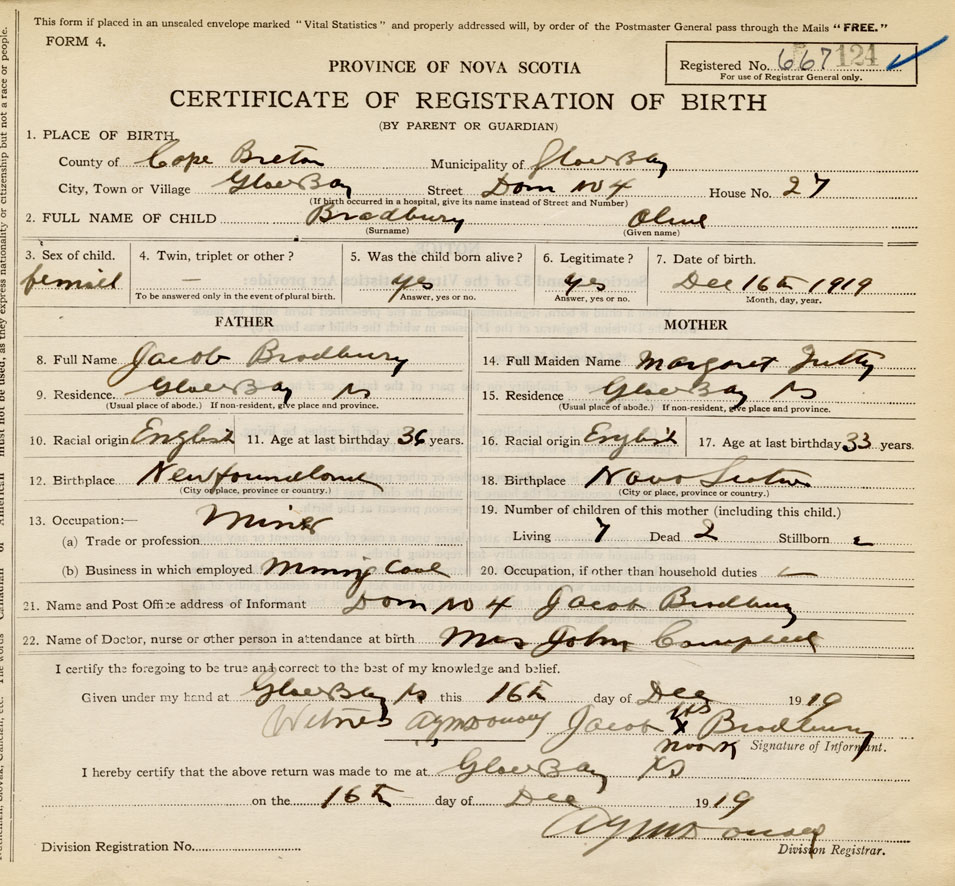 This form if placed in an unsealed envelope marked "Vital Statistics" and properly addressed will, by order of the Postmaster General pass through the Mails "FREE."
FORM 4.
Registered No. 667124
For use of Registrar General only.
PROVINCE OF NOVA SCOTIA
CERTIFICATE OF REGISTRATION OF BIRTH
(BY PARENT OR GUARDIAN)
1. PLACE OF BIRTH
County of Cape Breton Municipality of Glace Bay
City, Town or Village Glace Bay Street Dom No 4 House No. 27
(If birth occurred in a hospital, give its name instead of Street and Number)
2. FULL NAME OF CHILD Bradbury Olive
(Surname) (Given name)
3. Sex of child. 4. Twin, triplet or other? 5. Was the child born alive? 6. Legitimate? 7. Date of birth.
femail — Yes Yes Dec 16th 1919
To be answered only in the event of plural birth. Answer, yes or no. Answer, yes or no. Month, day, year.
FATHER
8. Full Name Jacob Bradbury
9. Residence. Glace Bay NS
(Usual place of abode.) If non-resident, give place and province.
10. Racial origin English 11. Age at last birthday 36 years.
12. Birthplace Newfoundland
(City or place, province or country.)
13. Occupation:— Miner
(a) Trade or profession
(b) Business in which employed Mining Coal
MOTHER
14. Full Maiden Name Margaret
15. Residence Glace Bay NS
(Usual place of abode.) If non-resident, give place and province.
16. Racial origin English 17. Age at last birthday 33 years.
18. Birthplace Nova Scotia
(City or place, province or country.)
19. Number of children of this mother (including this child.)
Living 7 Dead 2 Stillborn
20. Occupation, if other than household duties
21. Name and Post Office address of Informant Dom No 4 Jacob Bradbury
22. Name of Doctor, nurse or other person in attendance at birth Mrs John Campbell
I certify the foregoing to be true and correct to the best of my knowledge and belief.
Given under my hand at Glace Bay NS this 16th day of Dec 1919
Witness Jacob his X Bradbury
mark Signature of Informant.
I hereby certify that the above return was made to me at Glace Bay NS
on the 16th day of Dec 1919
Division Registration No.
Division Registrar.